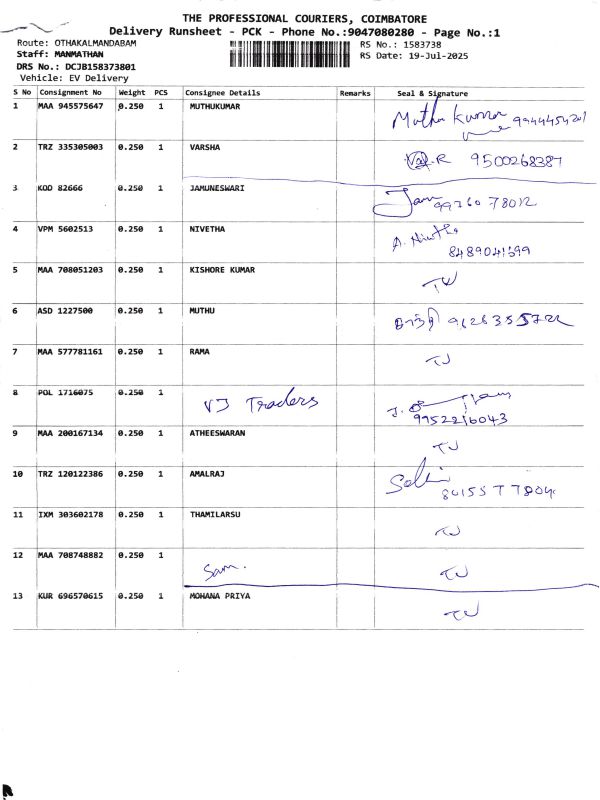 THE PROFESSIONAL COURIERS, COIMBATORE
Delivery Runsheet - PCK - Phone No.:9047080280 - Page No.:1
Route: OTHAKALMANDABAM
Staff: MANMATHAN
DRS No.: DCJB158373801
Vehicle: EV Delivery
RS No.: 1583738
RS Date: 19-Jul-2025
S No Consignment No Weight PCS Consignee Details Remarks Seal & Signature
1 MAA 945575647 0.250 1 MUTHUKUMAR Muthu Kumar
2 TRZ 335305003 0.250 1 VARSHA R 9500268387
3 KOD 82666 0.250 1 JAMUNESWARI Jam
99760 78012
4 VPM 5602513 0.250 1 NIVETHA A. Nivetha
5 MAA 708051203 0.250 1 KISHORE KUMAR
6 ASD 1227500 0.250 1 MUTHU
7 MAA 577781161 0.250 1 RAMA
8 POL 1716075 0.250 1 VJ Traders
9952216043
9 MAA 200167134 0.250 1 ATHEESWARAN
10 TRZ 120122386 0.250 1 AMALRAJ
11 IXM 303602178 0.250 1 THAMILARSU
12 MAA 708748882 0.250 1 Sam.
13 KUR 696570615 0.250 1 MOHANA PRIYA